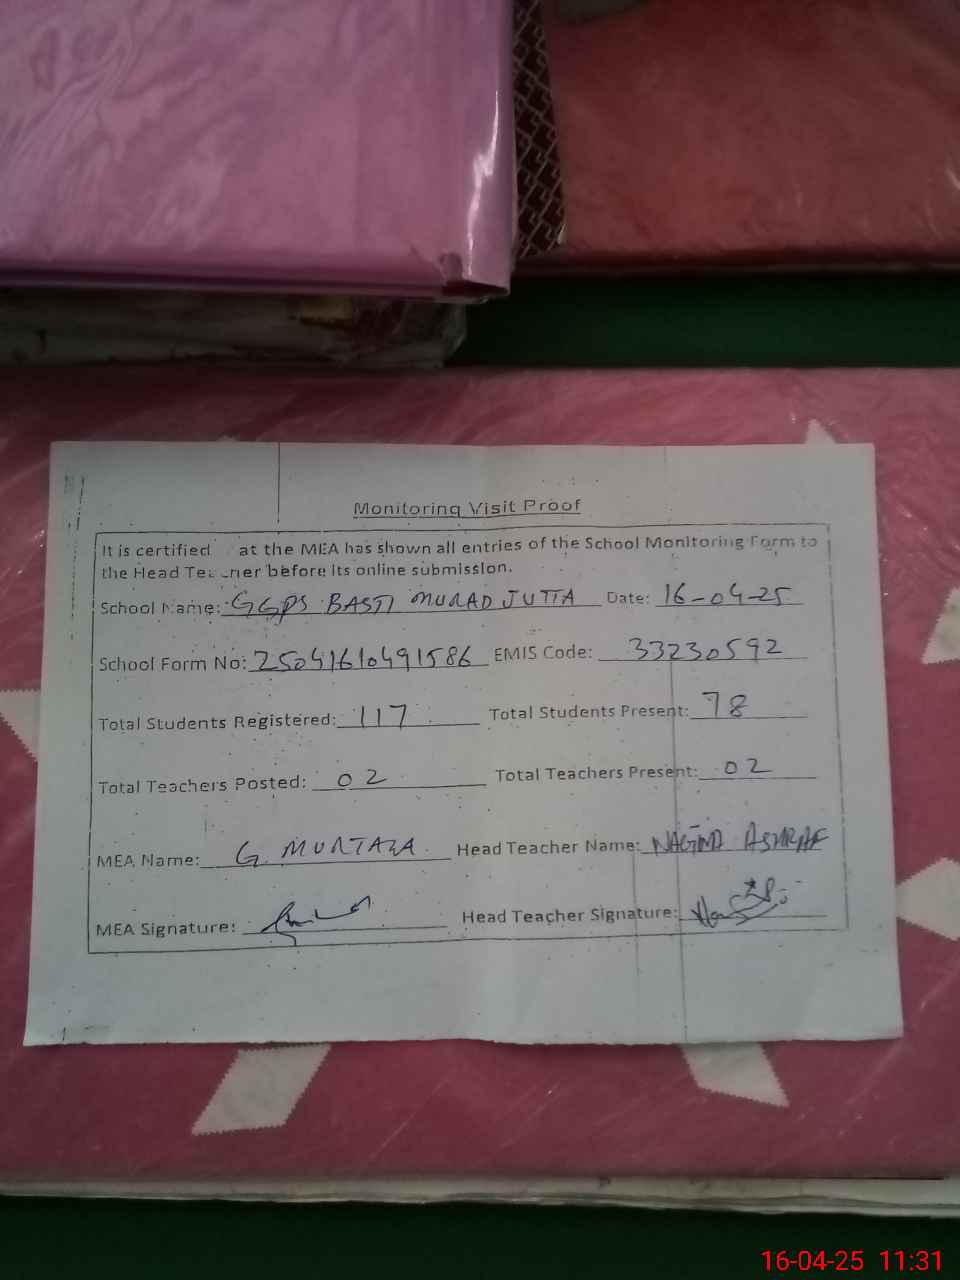 Monitoring Visit Proof
It is certified at the MEA has shown all entries of the School Monitoring Form to
the Head Teacher before its online submission.
School Name: GGPS BASTI MURAD JUTTA Date: 16-04-25
School Form No: 25041610491586 EMIS Code: 33230592
Total Students Registered: 117 Total Students Present: 78
Total Teachers Posted: 02 Total Teachers Present: 02
MEA Name: G. MURTAZA Head Teacher Name: NAGINA ASHRAF
MEA Signature: Head Teacher Signature:
16-04-25 11:31